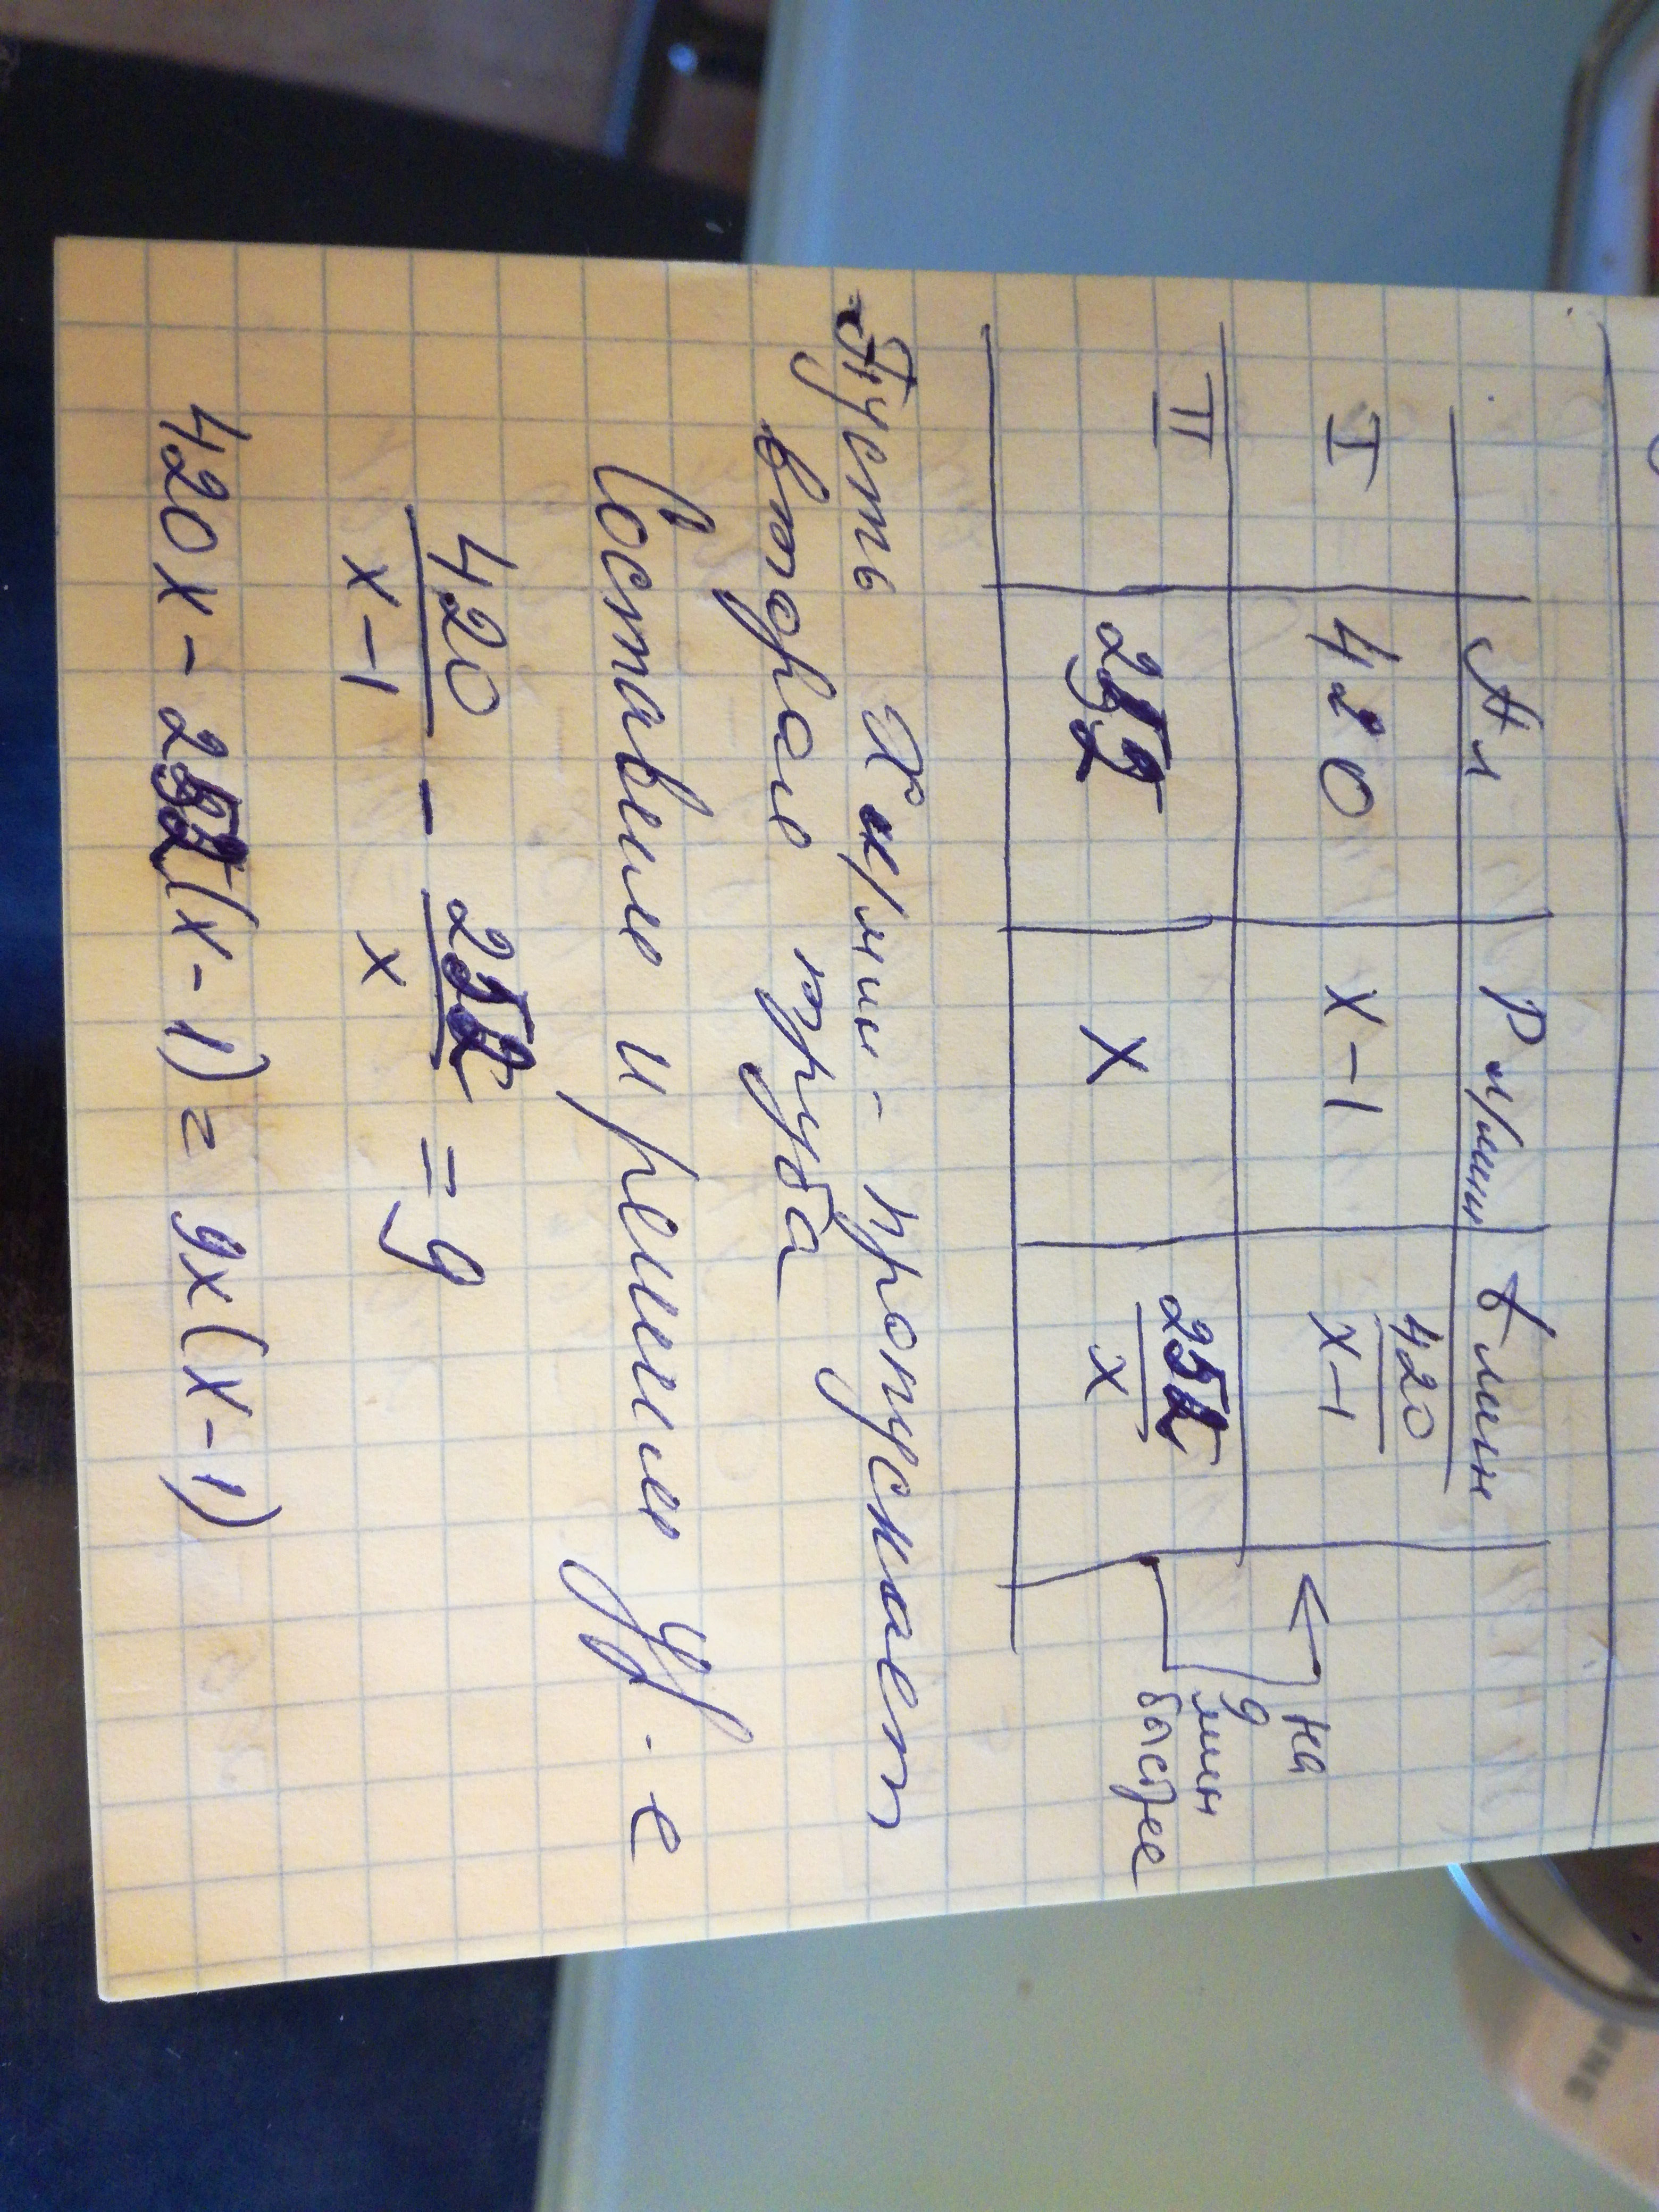 A л P л/мин t мин
I 420 x-1 420/x-1 на
II 252 x 252/x 9 мин быстрее
Пусть x л/мин - пропускает
вторая труба
Составим и решим ур-е
420/x-1 - 252/x = 9
420x - 252(x-1) = 9x(x-1)